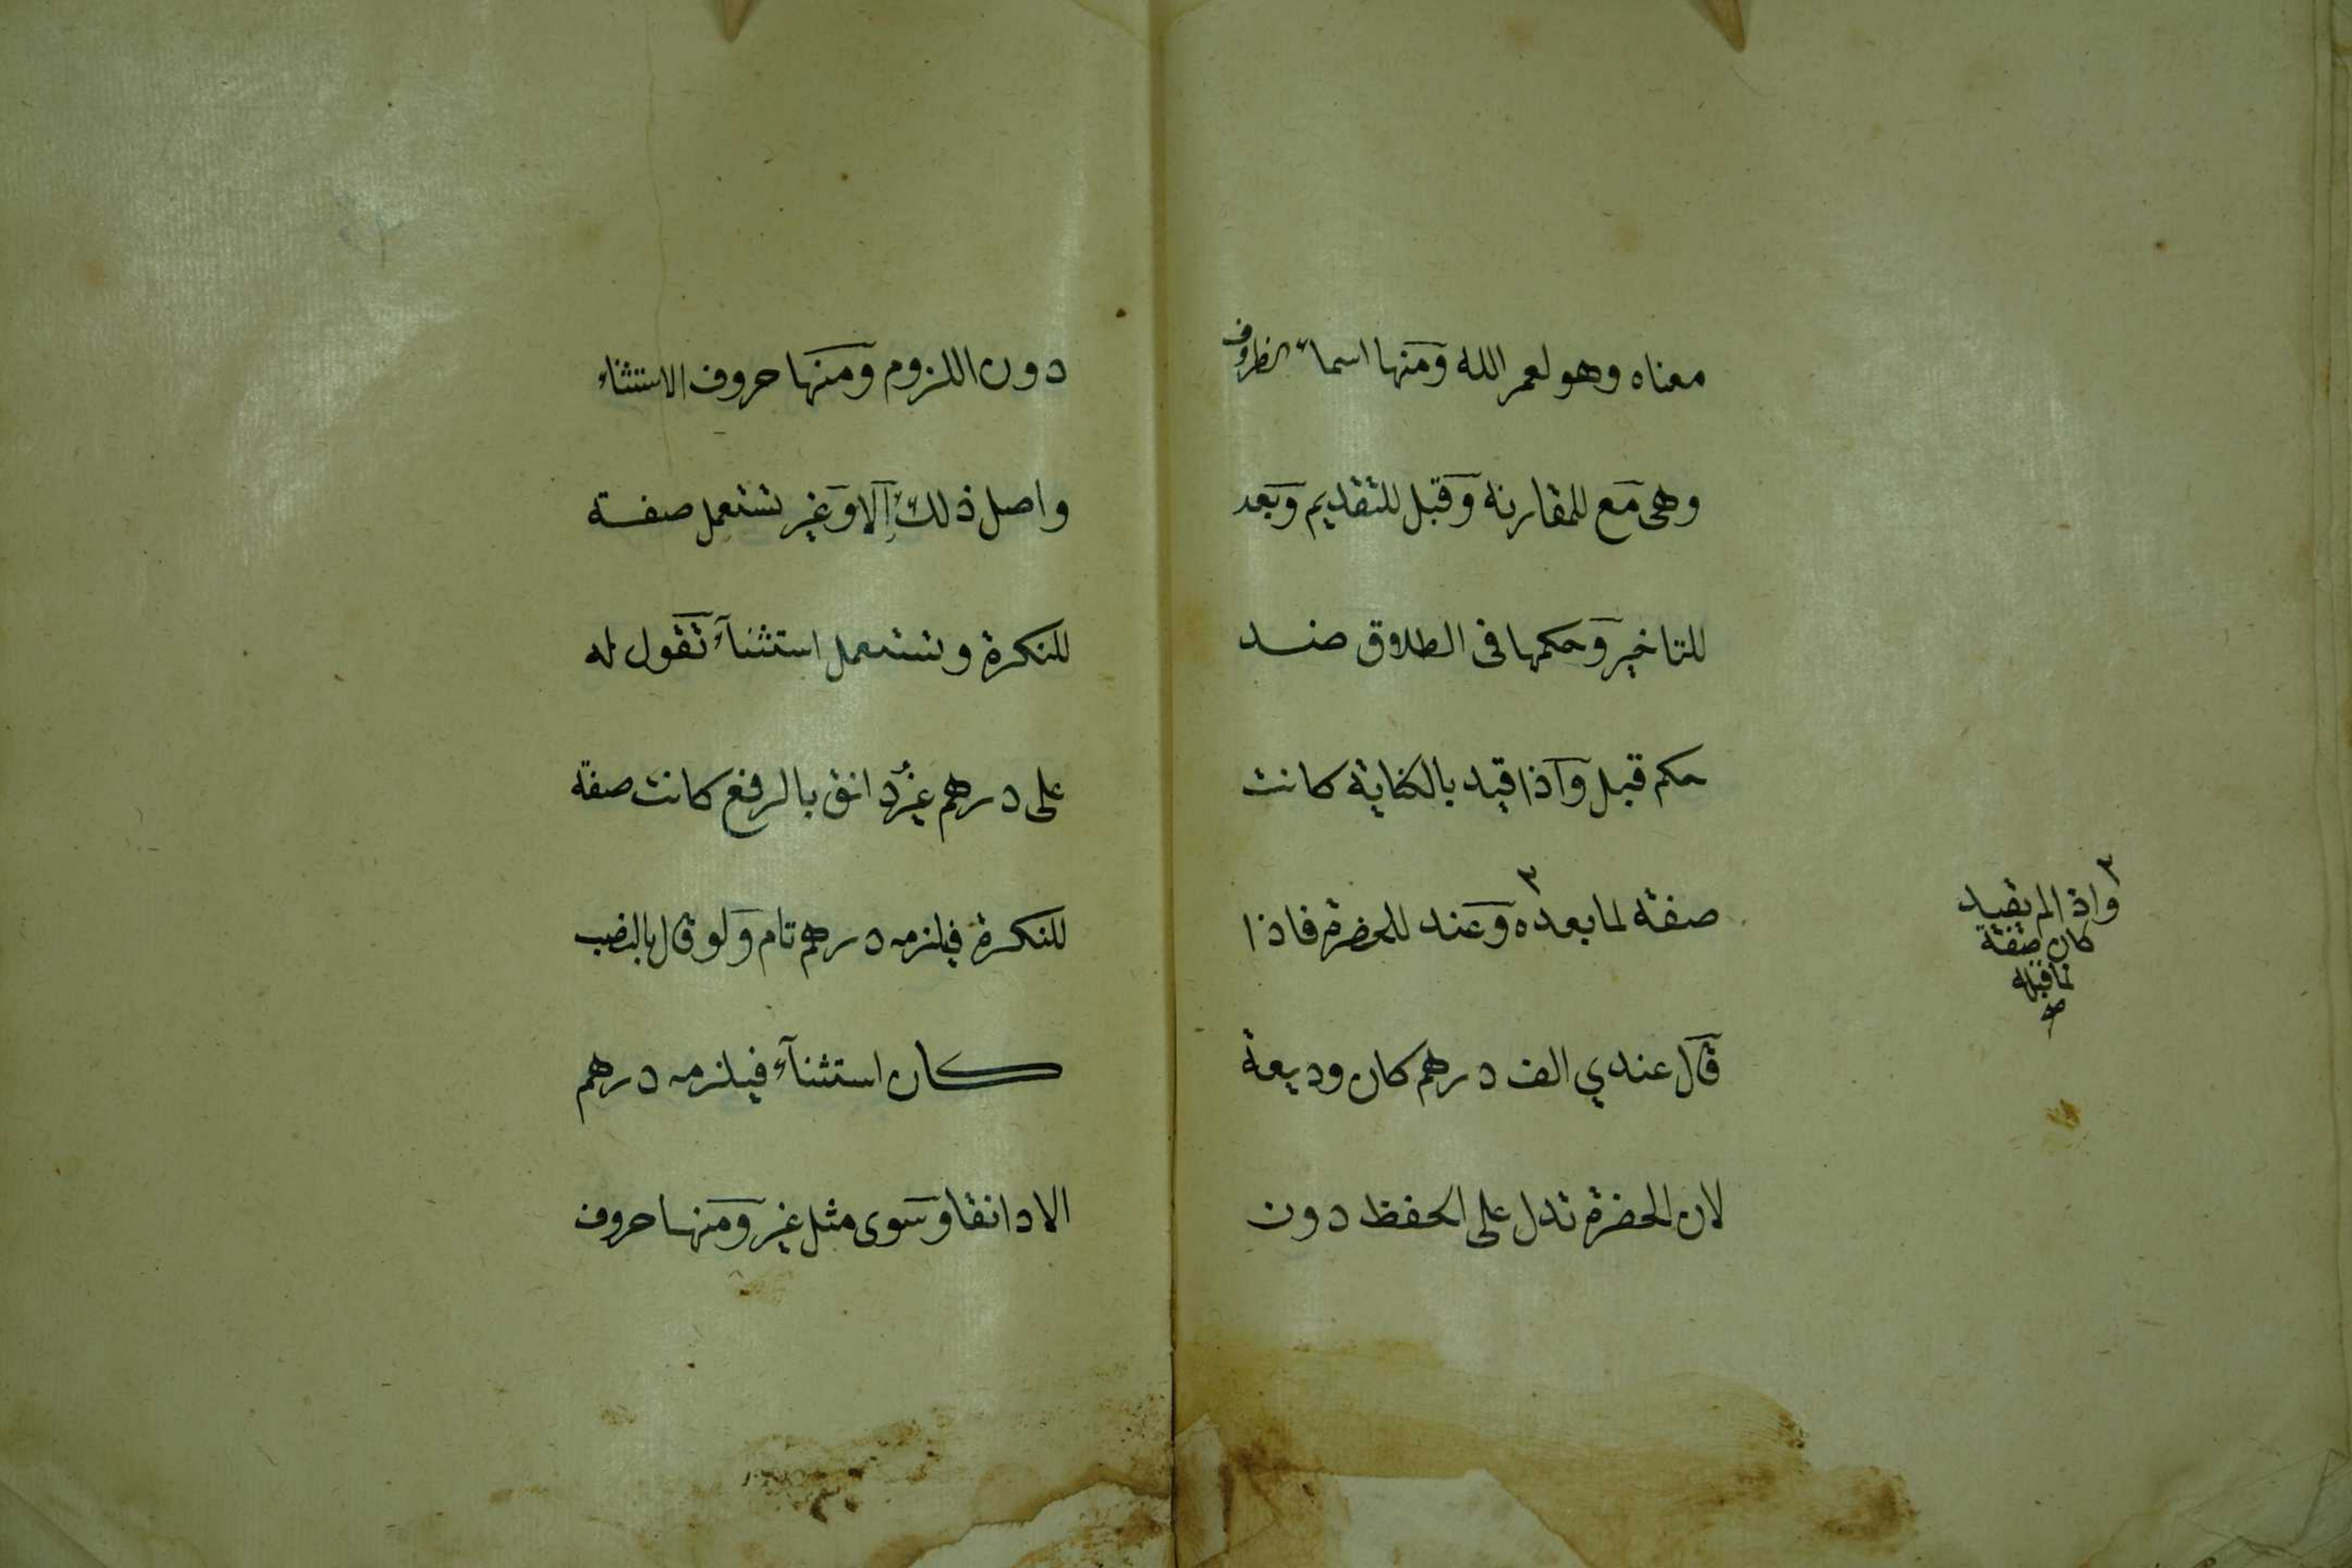 معناه وهو لعمر الله ومنها اسماء الظروف
وهى مع للمقارنة وقبل للتقديم وبعد
للتاخير وحكمها فى الطلاق ضد
حكم قبل واذا قيد بالكناية كانت
صفة لما بعده ٣ وعند للحضرة فاذا
قال عندي الف درهم كان وديعة
لان الحضرة تدل على الحفظ دون
٣ واذا لم يقيد
كان صفة
لما قبله
صح
دون اللزوم ومنها حروف الاستثناء
واصل ذلك إلا وغير تستعمل صفة
للنكرة وتستعمل استثناء تقول له
على درهم غيرُ دانق بالرفع كانت صفة
للنكرة فيلزمه درهم تام ولو قال بالنصب
كان استثناء فيلزمه درهم
الا دانقا وسوى مثل غير ومنها حروف